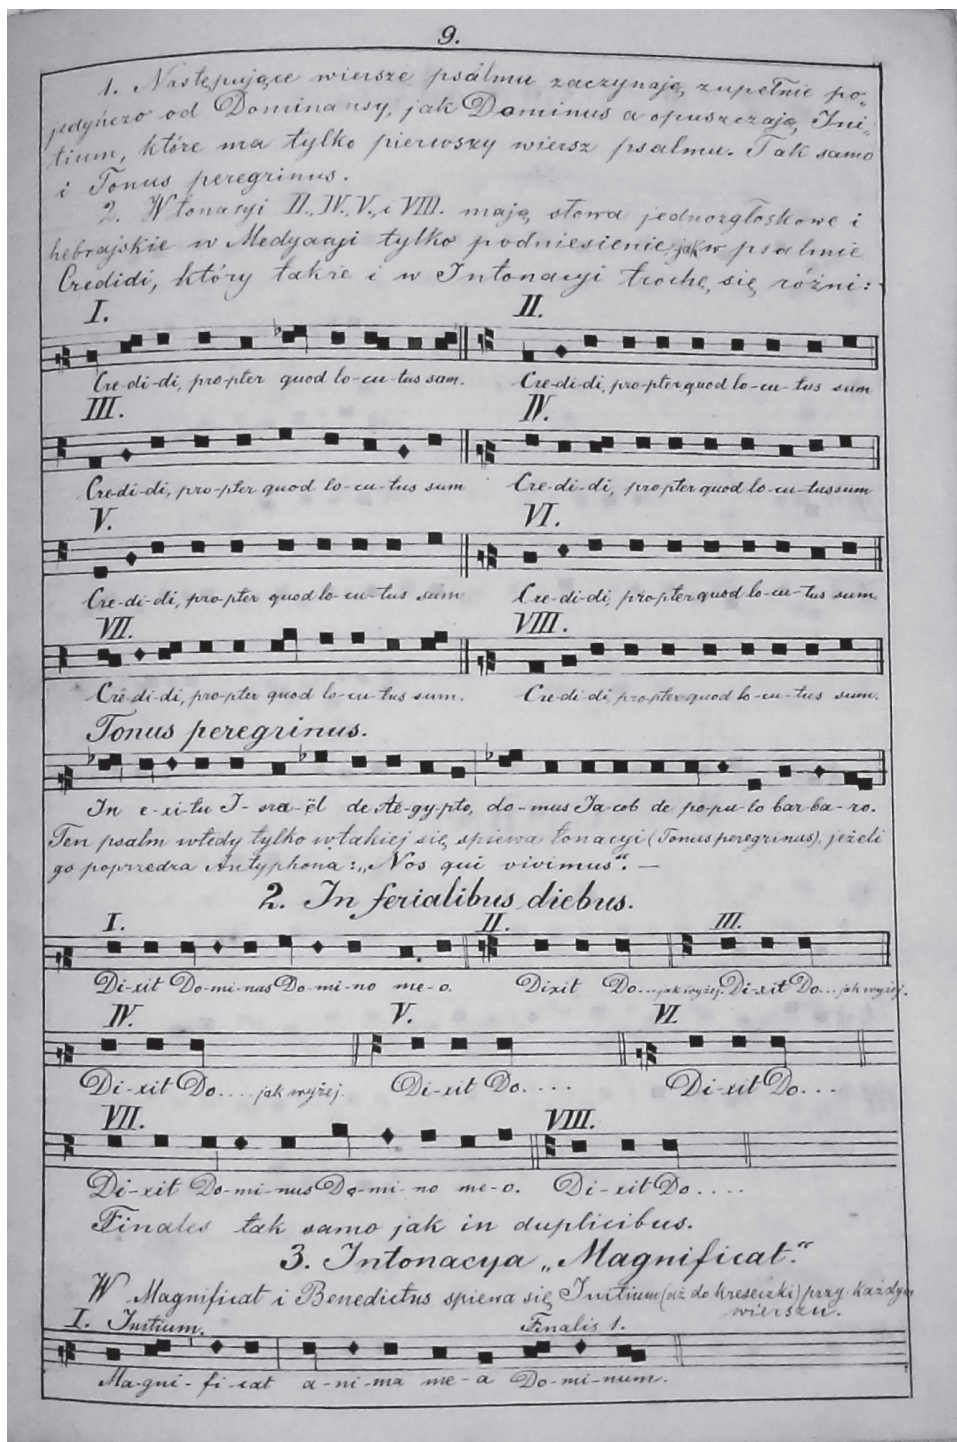 9.
1. Następujące wiersze psalmu zaczynają zupełnie po„
jedyńczo od Dominansy, jak Dominus a opuszczają Ini„
tium, które ma tylko pierwszy wiersz psalmu. Tak samo
i Tonus peregrinus.
2. W tonacyi II., IV., V., i VIII. mają słowa jednozgłoskowe i
hebrajskie w Medyacyi tylko podniesienie, jak w psalmie
Credidi, który także i w Intonacyi trochę się różni:
I. II.
Cre-di-di, pro-pter quod lo-cu-tus sum. Cre-di-di, pro-pter quod lo-cu-tus sum
III. IV.
Cre-di-di, pro-pter quod lo-cu-tus sum Cre-di-di, pro-pter quod lo-cu-tus sum
V. VI.
Cre-di-di, pro-pter quod lo-cu-tus sum Cre-di-di, pro-pter quod lo-cu-tus sum.
VII. VIII.
Cre-di-di, pro-pter quod lo-cu-tus sum. Cre-di-di, pro-pter quod lo-cu-tus sum.
Tonus peregrinus.
In e-xi-tu I-sra-ël de Ae-gy-pto, do-mus Ja-cob de po-pu-lo bar-ba-ro.
Ten psalm wtedy tylko w takiej się śpiewa tonacyi (Tonus peregrinus), jeżeli
go poprzedza Antyphona: „Nos qui vivimus“. —
2. In ferialibus diebus.
I. II. III.
Di-xit Do-mi-nus Do-mi-no me-o. Dixit Do... jak wyżej. Di-xit Do... jak wyżej.
IV. V. VI
Di-xit Do.... jak wyżej. Di-xit Do.... Di-xit Do...
VII. VIII.
Di-xit Do-mi-nus Do-mi-no me-o. Di-xit Do....
Finales tak samo jak in duplicibus.
3. Intonacya „Magnificat.“
W Magnificat i Benedictus śpiewa się Initium (aż do kreseczki) przy każdym
wierszu.
I. Initium. Finalis 1.
Ma-gni-fi-cat a-ni-ma me-a Do-mi-num.